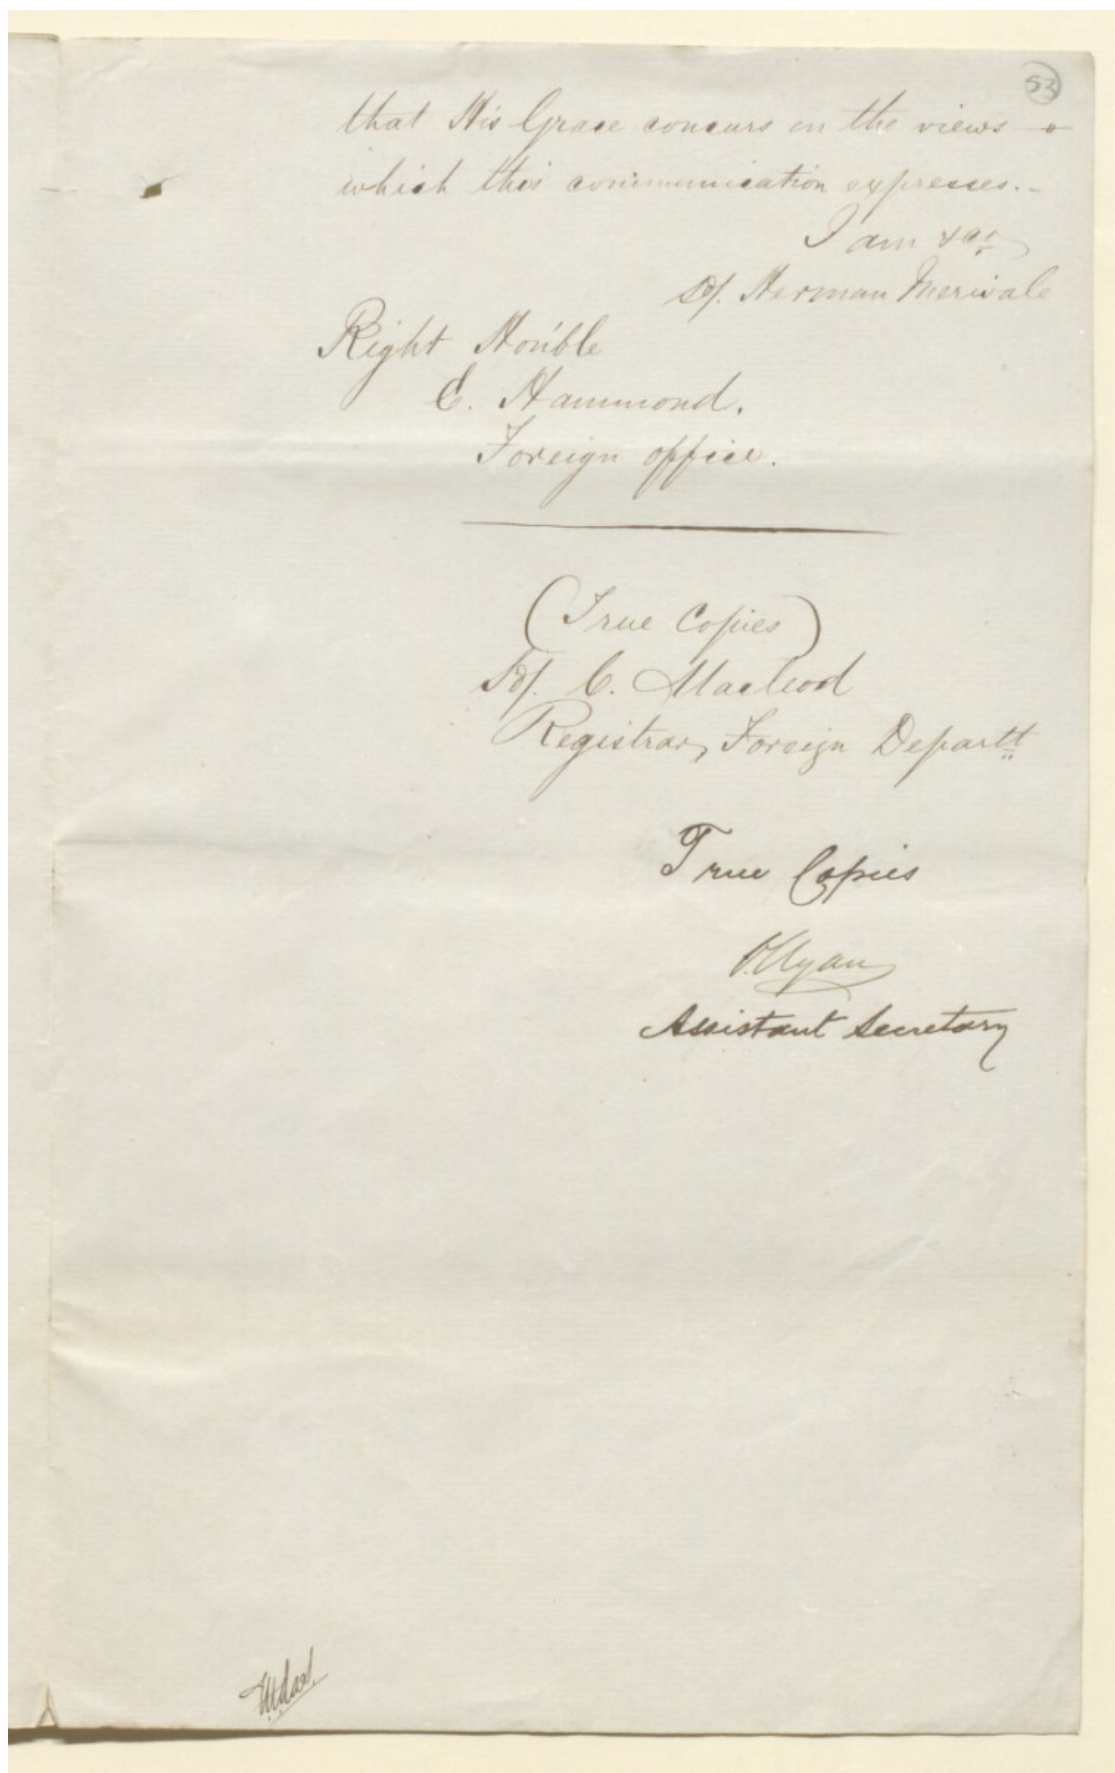 53
that His Grace concurs in the views
which this communication expresses.-
I am &ca
Sd/. Herman Merivale
Right Hon'ble
E. Hammond.
Foreign office.
(True Copies)
Sd/. C. Macleod
Registrar, Foreign Departt
True Copies
Assistant Secretary